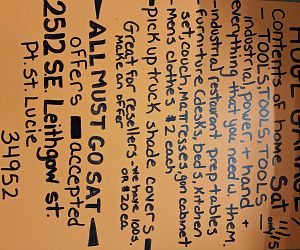 HUGE GARAGE
Contents of home Sat 11/5
only
- TOOLS, TOOLS, TOOLS -
industrial, power, + hand +
everything that you need w/ them.
- industrial restaurant prep tables
- Furniture (desks, beds, kitchen
set, couch, mattresses, gun cabinet
- Mens clothes $2 each
- pick up truck shade covers -
Great for resellers. we have 100s.
make an offer or $20 ea
ALL MUST GO SAT
offers accepted
2512 SE. Leithgow St.
Pt. St. Lucie
34952